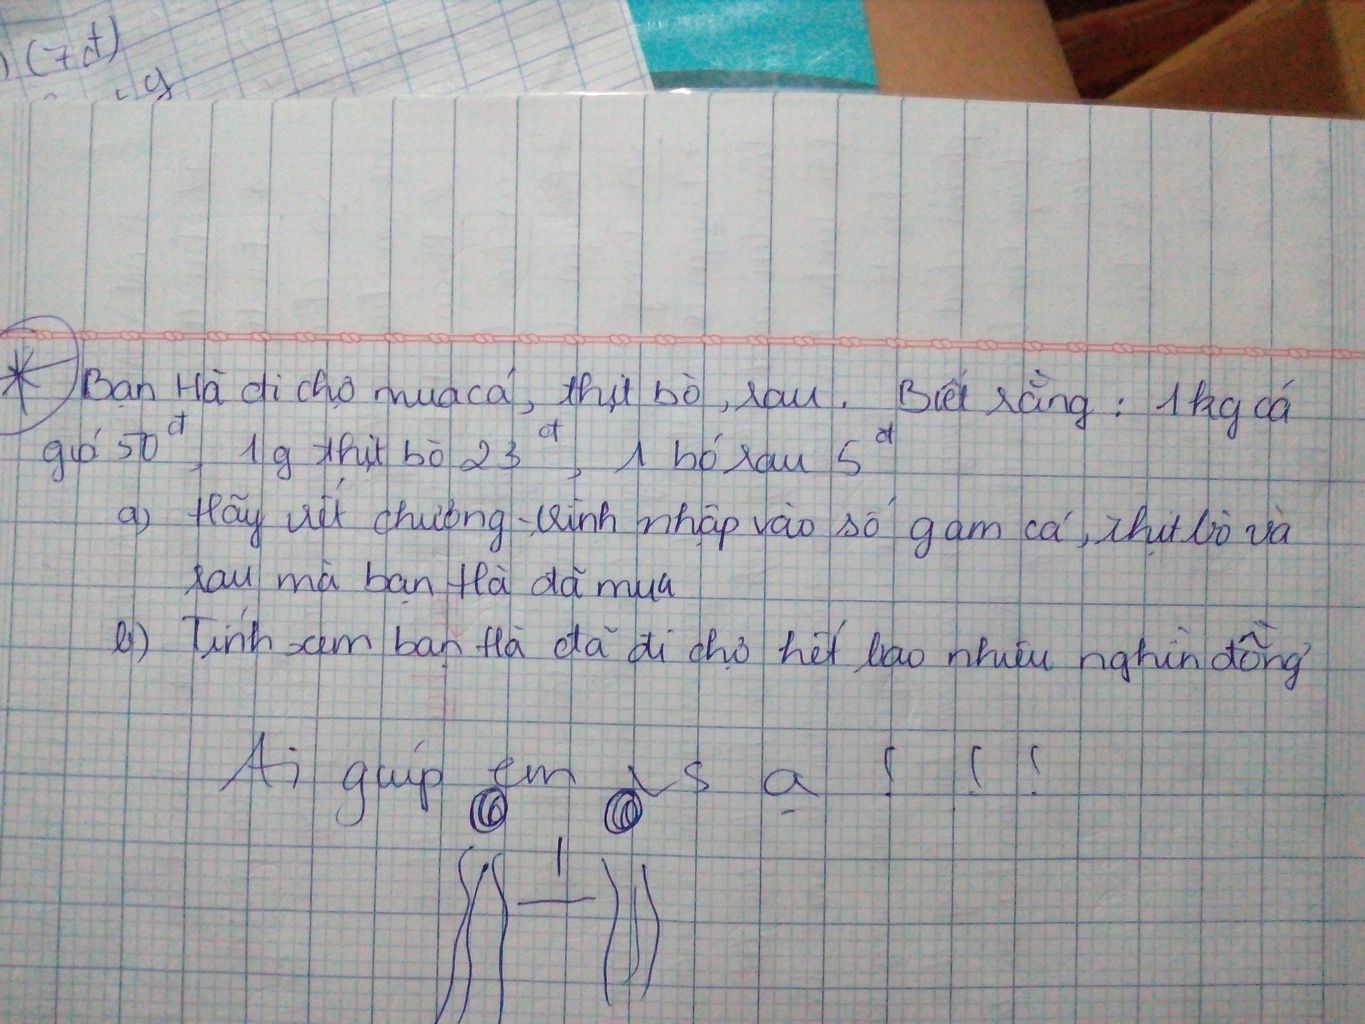 (7đ)
Bạn Hà đi chợ mua cá, thịt bò, rau. Biết rằng: 1kg cá
giá 50đ, 1g thịt bò 23đ, 1 bó rau 5đ
a) Hãy viết chương trình nhập vào số gam cá, thịt bò và
rau mà bạn Hà đã mua
b) Tính xem bạn Hà đã đi chợ hết bao nhiêu nghìn đồng
Ai giúp em vs ạ ! ! !